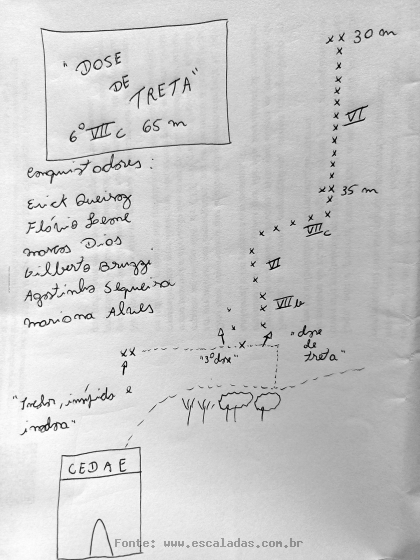 "DOSE
DE
TRETA"
6º VIIc 65 m
Conquistadores:
Erick Queiroz
Flávio Leone
Marcos Dios
Gilberto Bruzzi
Agostinho Sequeira
Mariana Alves
XX 30 m
VI
XX 35 m
VIIc
VI
VIIb
"3º dose"
"dose
de
treta"
XX
insípido e
CEDAE
Fonte: www.escaladas.com.br